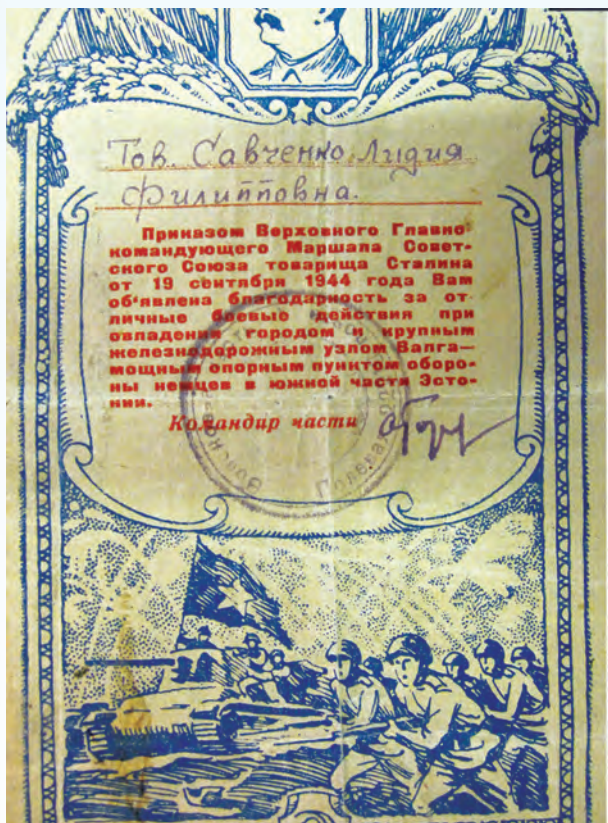 Тов. Савченко Лидия
Филипповна.
Приказом Верховного Главно-
командующего Маршала Совет-
ского Союза товарища Сталина
от 19 сентября 1944 года Вам
об'явлена благодарность за от-
личные боевые действия при
овладении городом и крупным
железнодорожным узлом Валга—
мощным опорным пунктом оборо-
ны немцев в южной части Эсто-
нии.
Командир части
Полевая